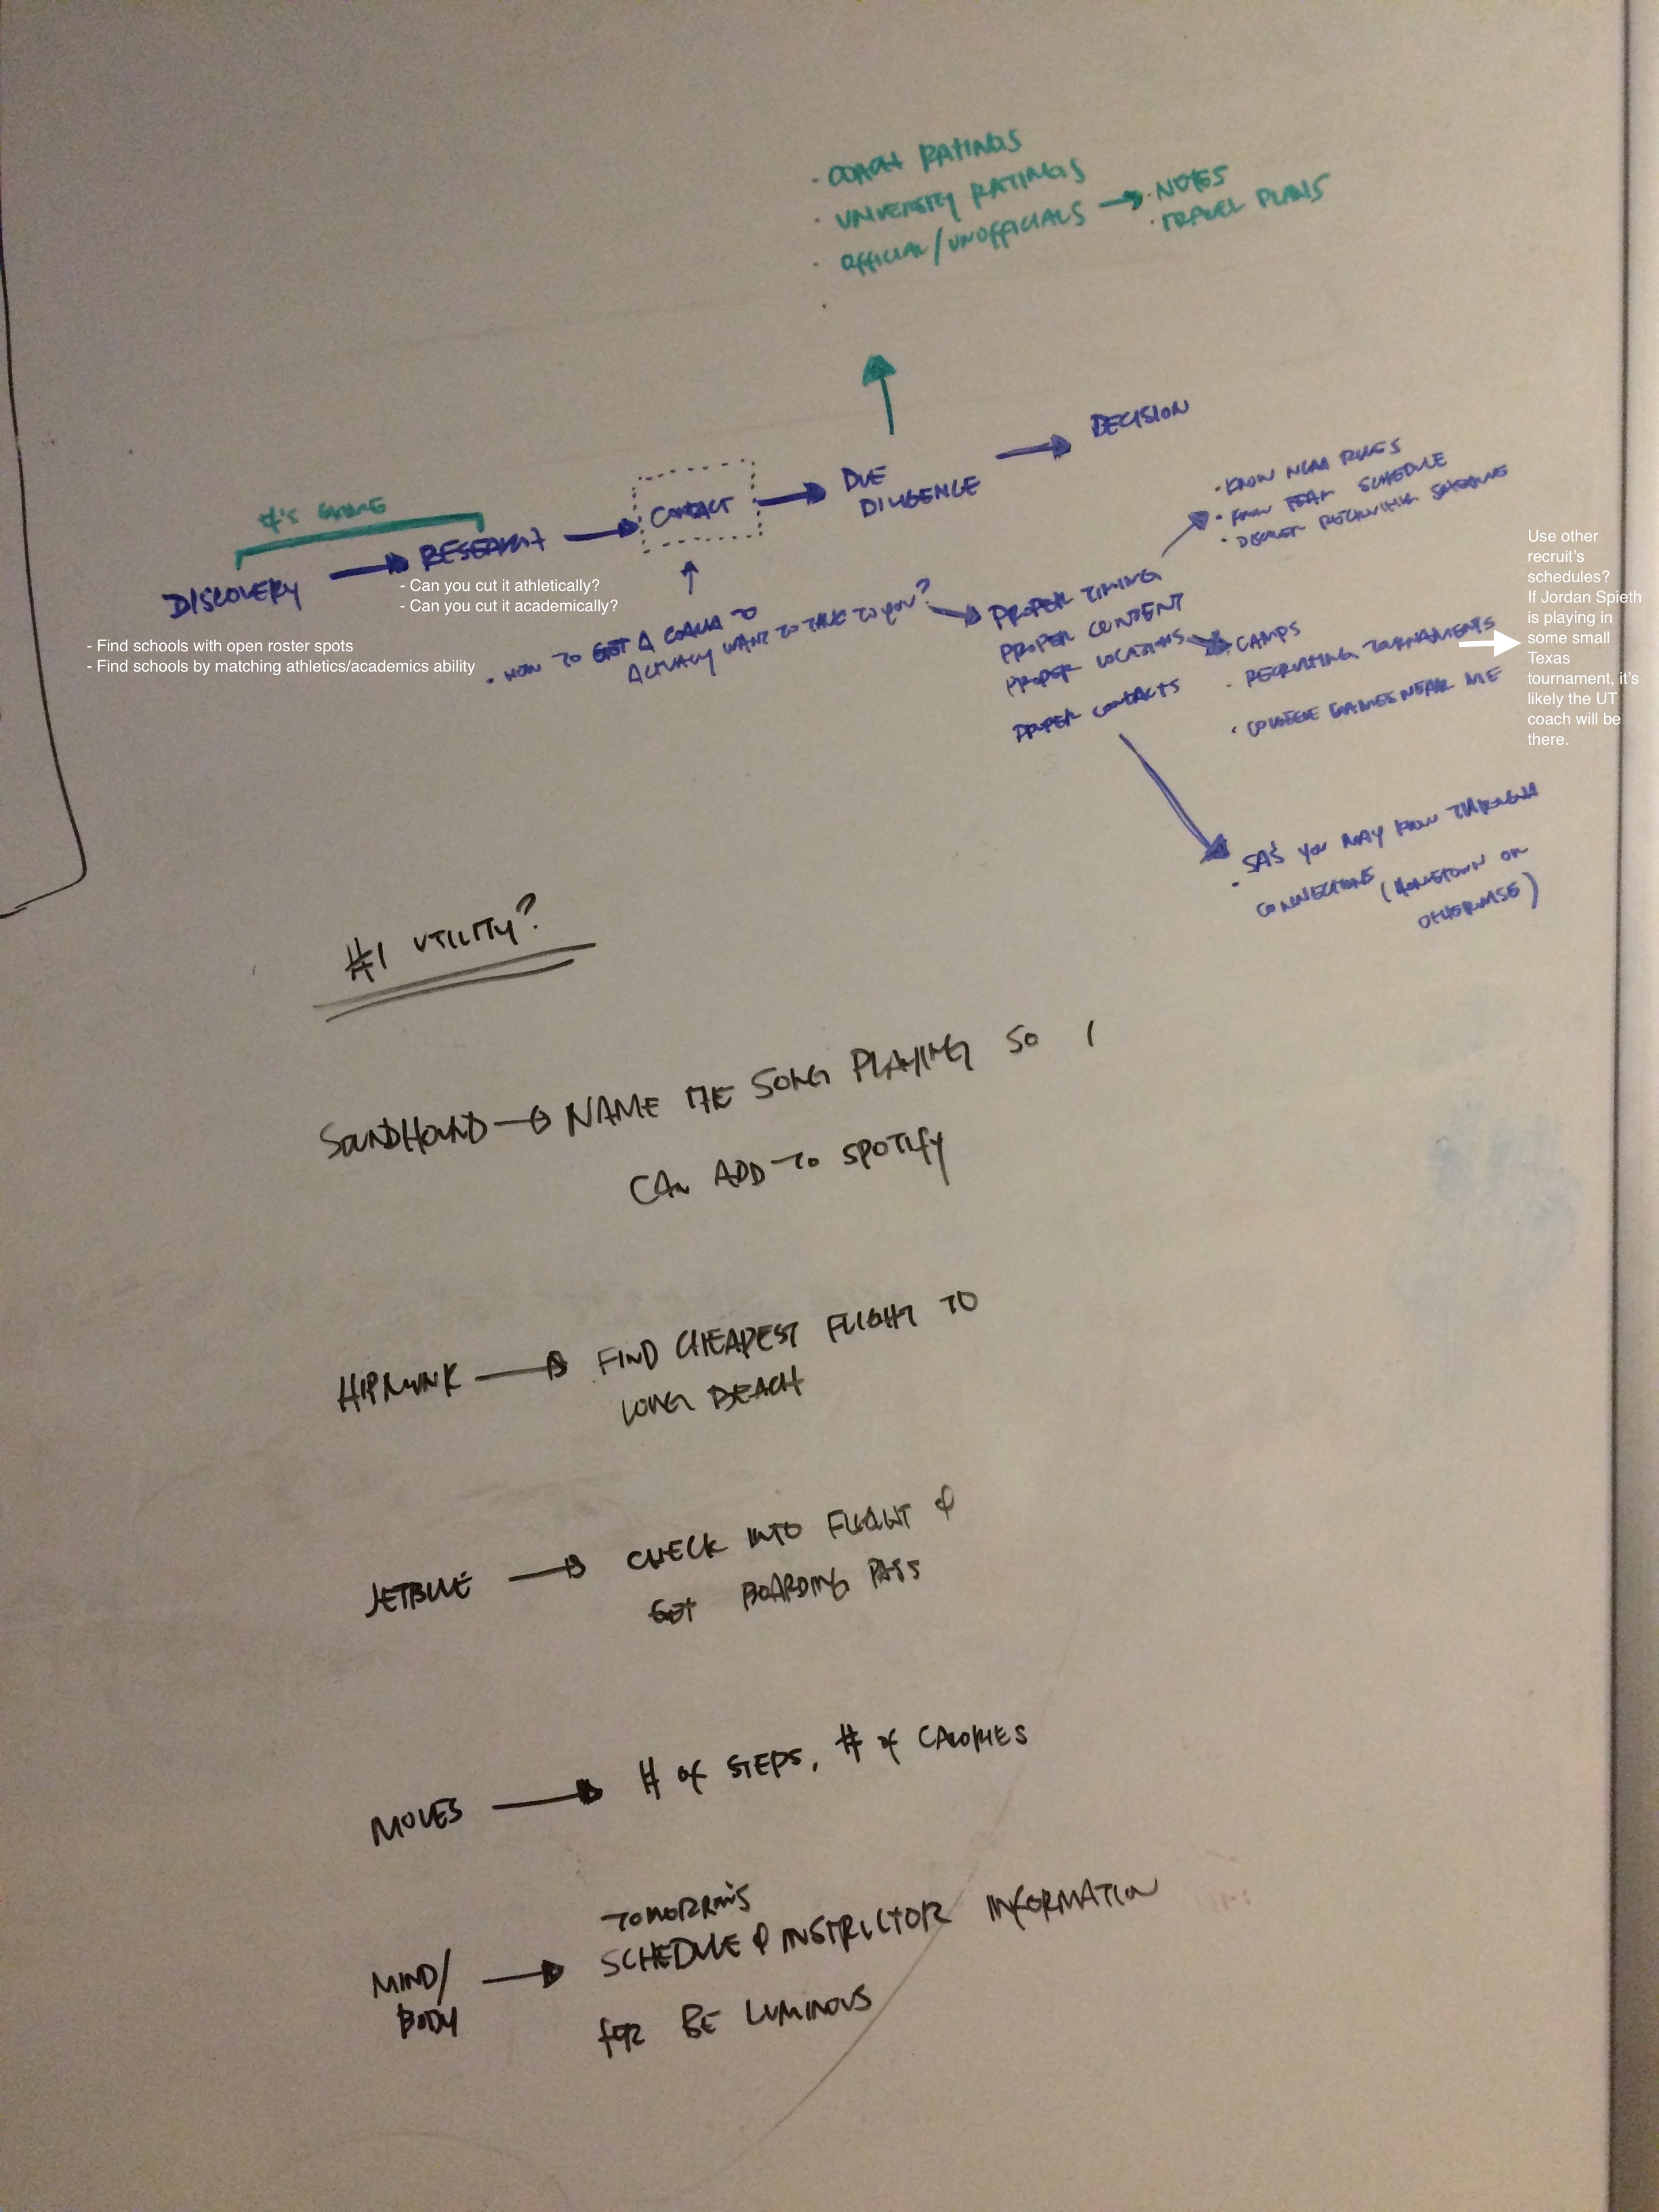 · COACH RATINGS
· UNIVERSITY RATINGS
· OFFICIAL/UNOFFICIALS → · NOTES
· TRAVEL PLANS
#'S GAME
DISCOVERY → RESEARCH → CONTACT → DUE DILIGENCE → DECISION
- Find schools with open roster spots
- Find schools by matching athletics/academics ability
- Can you cut it athletically?
- Can you cut it academically?
· HOW TO GET A COACH TO
ACTUALLY WANT TO TALK TO YOU?
PROPER TIMING
PROPER CONTENT
PROPER LOCATIONS
PROPER CONTACTS
· KNOW NCAA RULES
· KNOW TEAM SCHEDULE
· DISCOVER RECRUITING SCHEDULE
· CAMPS
· RECRUITING TOURNAMENTS
· COLLEGE GAMES NEAR ME
Use other
recruit's
schedules?
If Jordan Spieth
is playing in
some small
Texas
tournament, it's
likely the UT
coach will be
there.
· SA'S YOU MAY KNOW THROUGH
CONNECTIONS (HOMETOWN OR
OTHERWISE)
#1 UTILITY?
SOUNDHOUND → NAME THE SONG PLAYING SO I
CAN ADD TO SPOTIFY
HIPMUNK → FIND CHEAPEST FLIGHT TO
LONG BEACH
JETBLUE → CHECK INTO FLIGHT &
GET BOARDING PASS
MOVES → # of STEPS, # of CALORIES
TOMORROW'S
MIND/ → SCHEDULE & INSTRUCTOR INFORMATION
BODY
FOR BE LUMINOUS